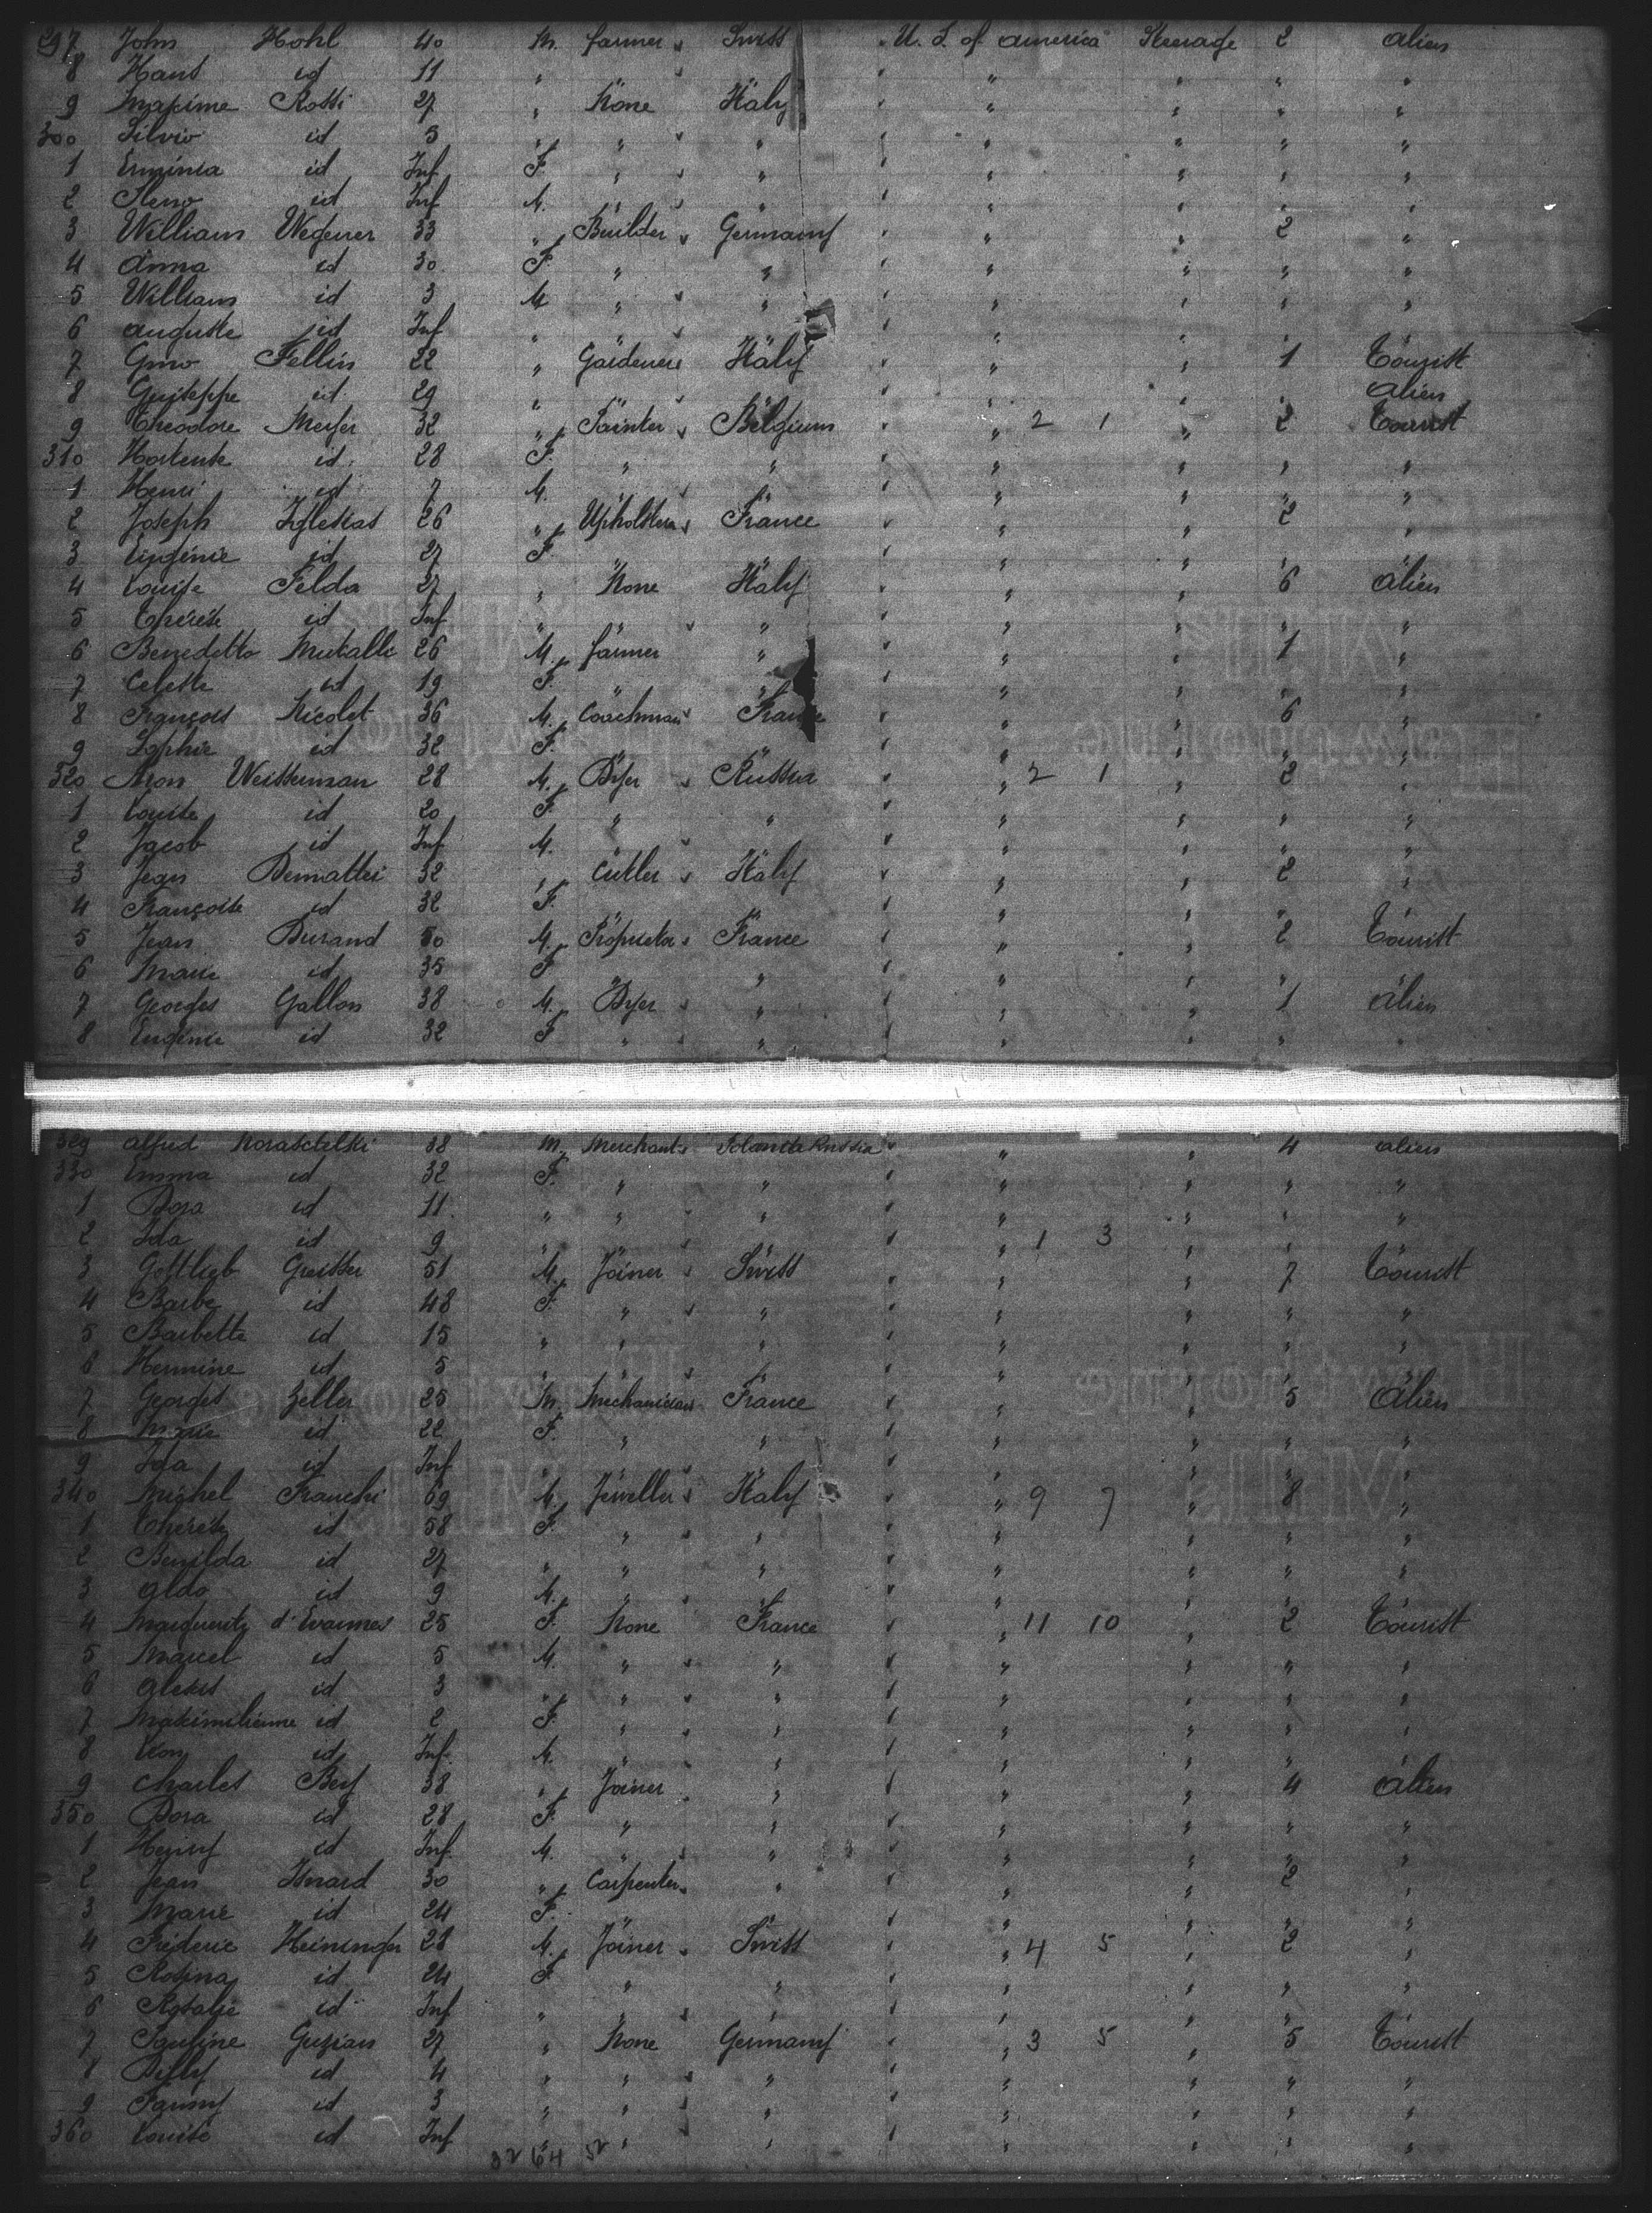 297 John Hohl 40 M. farmer Swiss U. S. of america Steerage 2 alien
8 Hans id 11 " " " " " "
9 Maxime Rossi 27 " None Italy " " " "
300 Silvio id 3 " " " " " " "
1 Erminia id Inf F. " " " " " "
2 Steno id Inf M. " " " " " "
3 William Wegener 33 " Builder Germany " " 2 "
4 Anna id 30 F. " " " " " "
5 William id 3 M " " " " " "
6 auguste id Inf " " " " " " "
7 Gino Fellin 22 " Gardener Italy " " 1 Tourist
8 Guiseppe id 29 " " " " " " alien
9 Theodore Meyer 32 " Painter Belgium " 2 1 " 2 Tourist
310 Hortense id 28 F. " " " " " "
1 Henri id 7 M. " " " " " "
2 Joseph Iglesias 26 " Upholsterer France " " 2 "
3 Eugénie id 27 F. " " " " " "
4 Louise Felda 27 " None Italy " " 6 alien
5 Thérèse id Inf " " " " " " "
6 Benedetto 26 M. farmer " " " 1 "
7 Celeste id 19 F. " " " " " "
8 François Nicolet 36 M. Coachman France " " 6 "
9 Sophie id 32 F. " " " " " "
320 Aron Weisserman 28 M. Dyer Russia " 2 1 " 2 "
1 Louise id 20 F. " " " " " "
2 Jacob id Inf M. " " " " " "
3 Jean Demattei 32 " Cutler Italy " " 2 "
4 Françoise id 32 F. " " " " " "
5 Jean Durand 50 M. Proprietor France " " 2 Tourist
6 Marie id 35 F " " " " " "
7 Georges Gallon 38 M. Dyer " " " 1 alien
8 Eugénie id 32 F " " " " " "
329 alfred 38 M. Merchant Russia " " 4 alien
330 Emma id 32 F. " " " " " "
1 Dora id 11 " " " " " " "
2 Ida id 9 " " " " 1 3 " " "
3 Gottlieb 51 M. Joiner Swiss " " 7 Tourist
4 Barbe id 48 F. " " " " " "
5 Barbette id 15 " " " " " " "
6 Hermine id 5 " " " " " " "
7 Georges Zeller 25 M. Mechanician France " " 5 Alien
8 Marie id 22 F. " " " " " "
9 Ida id Inf " " " " " " "
340 Michel Franchi 69 M. Jeweller Italy " 9 7 " 8 "
1 Thérèse id 58 F. " " " " " "
2 Benilda id 27 " " " " " " "
3 aldo id 9 M. " " " " " "
4 Marguerite 25 F. None France " 11 10 " 2 Tourist
5 Marcel id 5 M. " " " " " "
6 alexis id 3 " " " " " " "
7 Maximilienne id 2 F. " " " " " "
8 Léon id Inf. M. " " " " " "
9 Charles Bey 38 " Joiner " " " 4 alien
350 Dora id 28 F. " " " " " "
1 Henry id Inf. M. " " " " " "
2 Jean Isnard 30 " Carpenter " " " 2 "
3 Marie id 24 F. " " " " " "
4 Frédéric Heininger 28 M. Joiner Swiss " 4 5 " 2 "
5 Rosina id 24 F " " " " " "
6 id Inf " " " " " " "
7 Pauline 27 " None Germany " 3 5 " 5 Tourist
8 id 4 " " " " " " "
9 Fanny id 3 " " " " " " "
360 Louise id Inf " " " " " " "
32 64 52